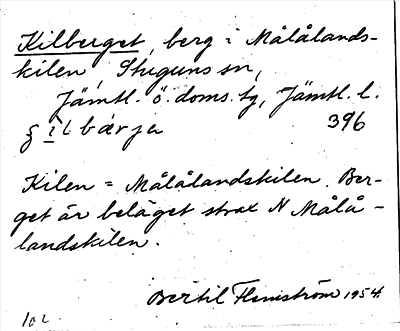 Kilberget, berg i Målålands-
kilen, Stuguns sn,
Jämtl. ö. doms. tg, Jämtl. l.
ʒ̂ílbárja 396
Kilen = Målålandskilen. Ber-
get är beläget strax N Målå-
landskilen.
Bertil Flemström 1954.
102